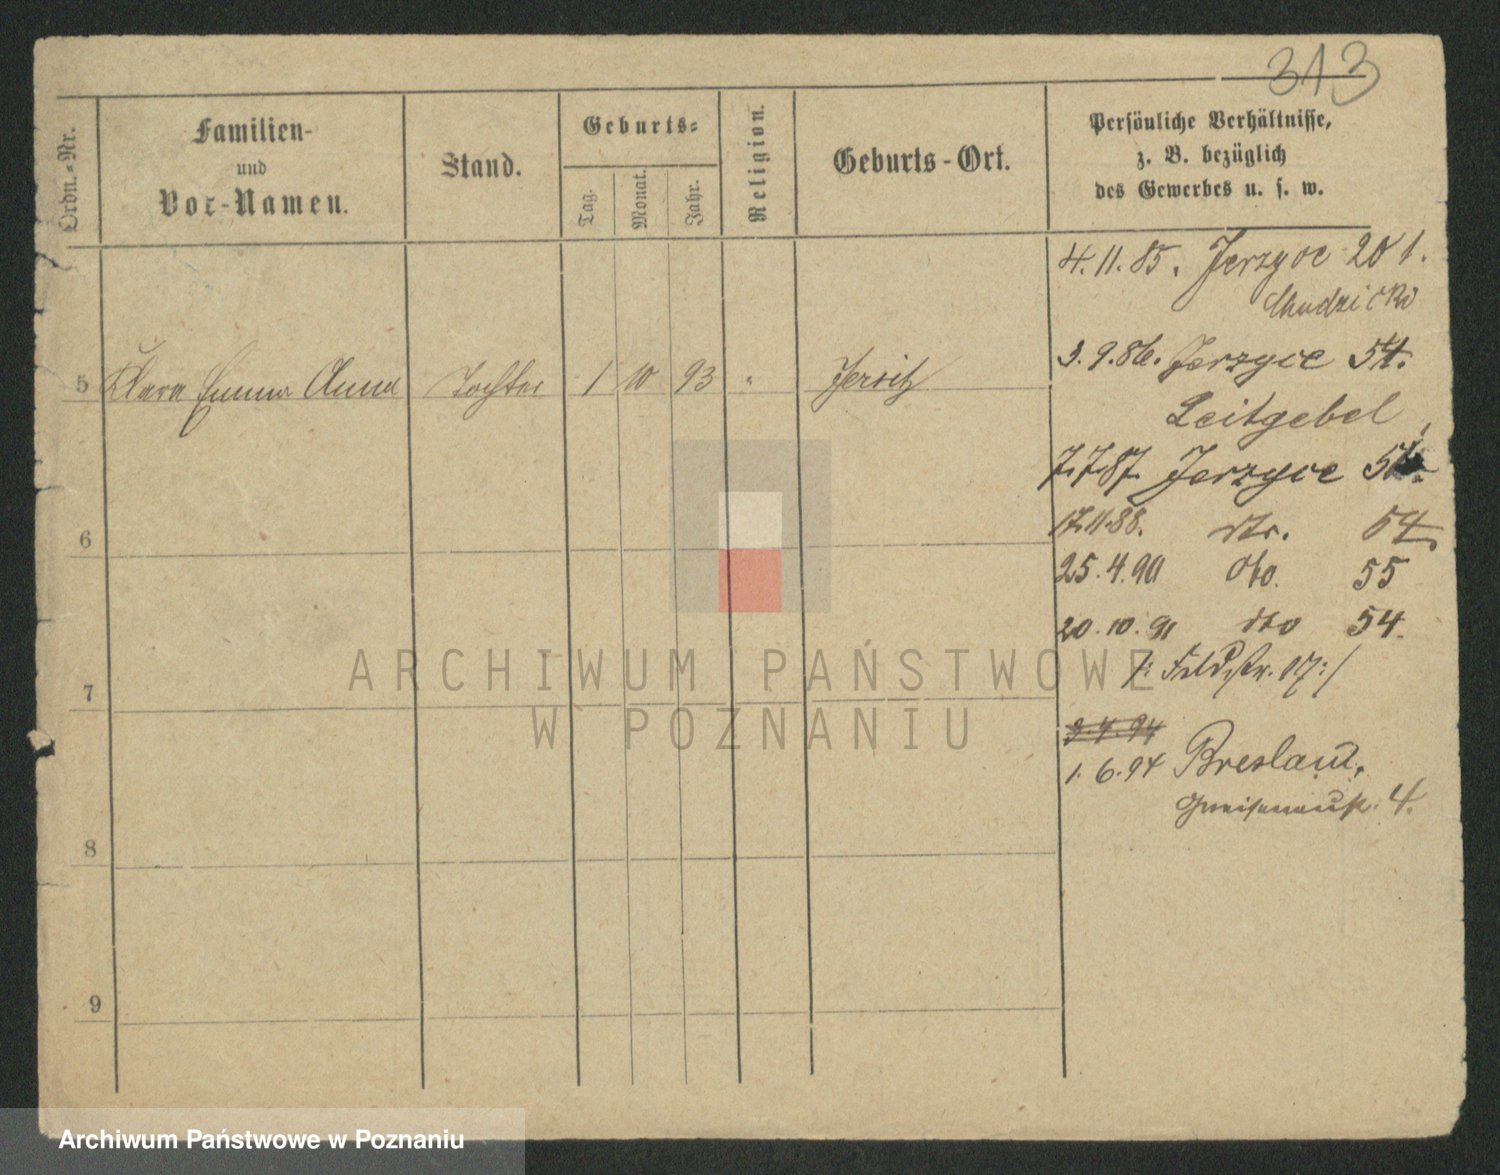 313
Ordn.-Nr.
Familien-
und
Vor-Namen.
Stand.
Geburts-
Tag.
Monat.
Jahr.
Religion.
Geburts-Ort.
Persönliche Verhältnisse,
z. B. bezüglich
des Gewerbes u. s. w.
4.11.85. Jerzyce 201.
3.9.86. Jerzyce 54.
5 Klara Emma Anna Tochter 1 10 93 " Jersitz
Leitgebel
7.7.87. Jerzyce
6
17.11.88. dto. 54
25.4.90 dto. 55
20.10.91 dto 54.
/: Feldstr. 17:/
7
3.4.94
1.6.94 Breslau,
Gneisenaustr. 4.
8
9
ARCHIWUM PAŃSTWOWE
W POZNANIU
Archiwum Państwowe w Poznaniu